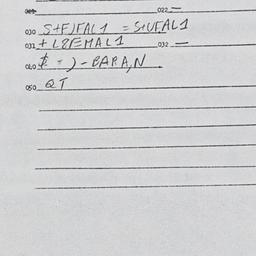 022
030 S+FJFAL1 = S+UFAL1
031 + L8FMAL1 032
040 $ - ) - BARA,N
050 QT